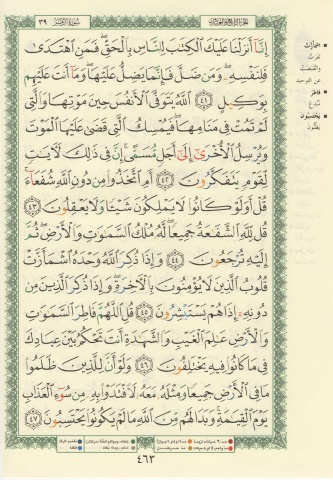 سورة الزمر ٣٩
إِنَّا أَنزَلْنَا عَلَيْكَ الْكِتَابَ لِلنَّاسِ بِالْحَقِّ ۖ فَمَنِ اهْتَدَىٰ
فَلِنَفْسِهِ ۖ وَمَن ضَلَّ فَإِنَّمَا يَضِلُّ عَلَيْهَا ۖ وَمَا أَنتَ عَلَيْهِم
بِوَكِيلٍ ٤١ اللَّهُ يَتَوَفَّى الْأَنفُسَ حِينَ مَوْتِهَا وَالَّتِي
لَمْ تَمُتْ فِي مَنَامِهَا ۖ فَيُمْسِكُ الَّتِي قَضَىٰ عَلَيْهَا الْمَوْتَ
وَيُرْسِلُ الْأُخْرَىٰ إِلَىٰ أَجَلٍ مُّسَمًّى ۚ إِنَّ فِي ذَٰلِكَ لَآيَاتٍ
لِّقَوْمٍ يَتَفَكَّرُونَ ٤٢ أَمِ اتَّخَذُوا مِن دُونِ اللَّهِ شُفَعَاءَ ۚ
قُلْ أَوَلَوْ كَانُوا لَا يَمْلِكُونَ شَيْئًا وَلَا يَعْقِلُونَ ٤٣
قُل لِّلَّهِ الشَّفَاعَةُ جَمِيعًا ۖ لَّهُ مُلْكُ السَّمَاوَاتِ وَالْأَرْضِ ۖ ثُمَّ
إِلَيْهِ تُرْجَعُونَ ٤٤ وَإِذَا ذُكِرَ اللَّهُ وَحْدَهُ اشْمَأَزَّتْ
قُلُوبُ الَّذِينَ لَا يُؤْمِنُونَ بِالْآخِرَةِ ۖ وَإِذَا ذُكِرَ الَّذِينَ مِن
دُونِهِ إِذَا هُمْ يَسْتَبْشِرُونَ ٤٥ قُلِ اللَّهُمَّ فَاطِرَ السَّمَاوَاتِ
وَالْأَرْضِ عَالِمَ الْغَيْبِ وَالشَّهَادَةِ أَنتَ تَحْكُمُ بَيْنَ عِبَادِكَ
فِي مَا كَانُوا فِيهِ يَخْتَلِفُونَ ٤٦ وَلَوْ أَنَّ لِلَّذِينَ ظَلَمُوا
مَا فِي الْأَرْضِ جَمِيعًا وَمِثْلَهُ مَعَهُ لَافْتَدَوْا بِهِ مِن سُوءِ الْعَذَابِ
يَوْمَ الْقِيَامَةِ ۚ وَبَدَا لَهُم مِّنَ اللَّهِ مَا لَمْ يَكُونُوا يَحْتَسِبُونَ ٤٧
اشمأزت
نفرت
وانقبضت
عن التوحيد
فاطر
مبدع
يحتسبون
يظنون
٤٦٣